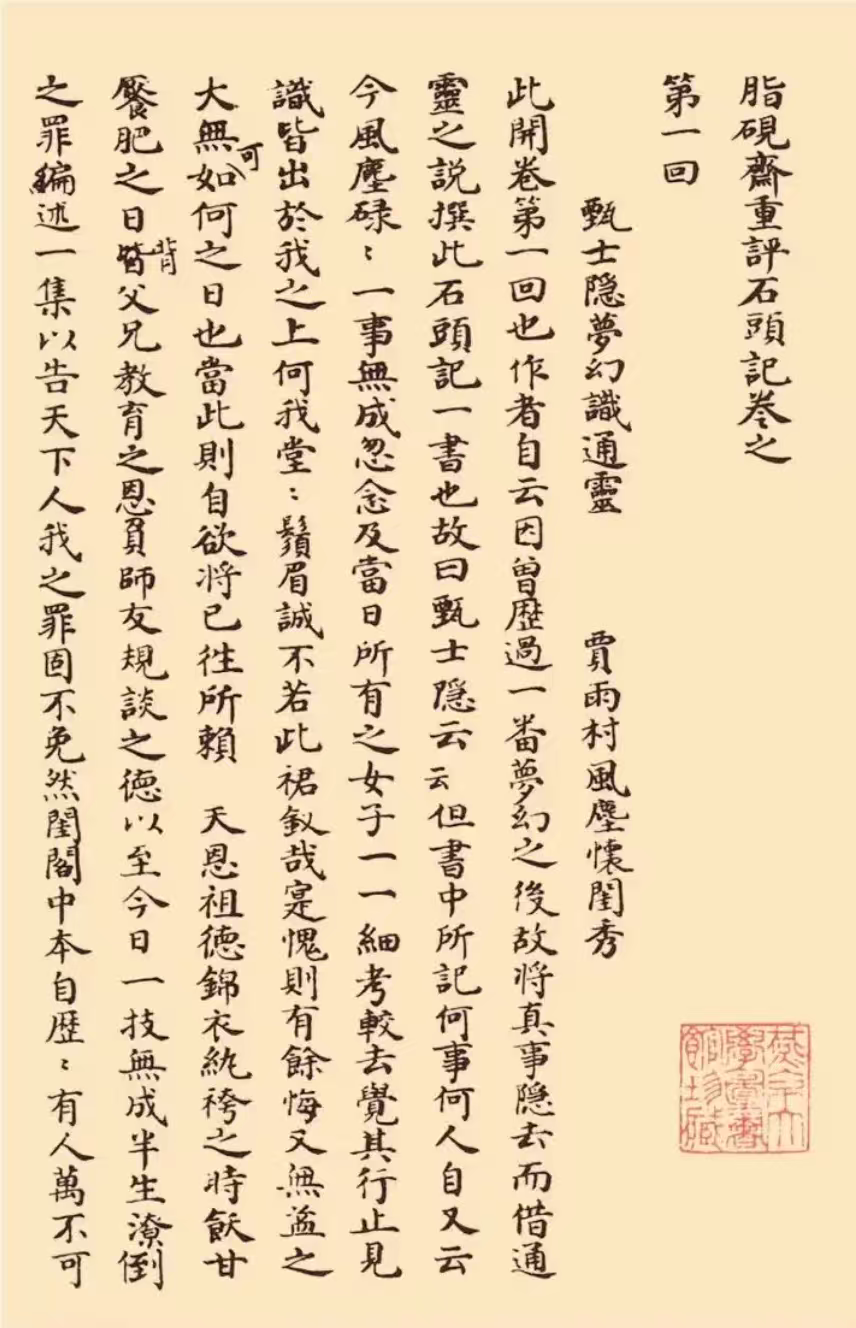 脂硯齋重評石頭記卷之
第一回
甄士隐夢幻識通靈　賈雨村風塵懷閨秀
此開卷第一回也作者自云因曾歷過一番夢幻之後故將真事隐去而借通
靈之説撰此石頭記一書也故曰甄士隐云云但書中所記何事何人自又云
今風塵碌〻一事無成忽念及當日所有之女子一一細考較去覺其行止見
識皆出於我之上何我堂〻鬚眉誠不若此裙釵哉寔愧則有餘悔又無益之
大無可如何之日也當此則自欲將已徃所賴　天恩祖德錦衣紈袴之時飫甘
饜肥之日皆背父兄教育之恩負師友規談之德以至今日一技無成半生潦倒
之罪編述一集以告天下人我之罪固不免然閨閣中本自歷〻有人萬不可
燕京大學圖書館珍藏